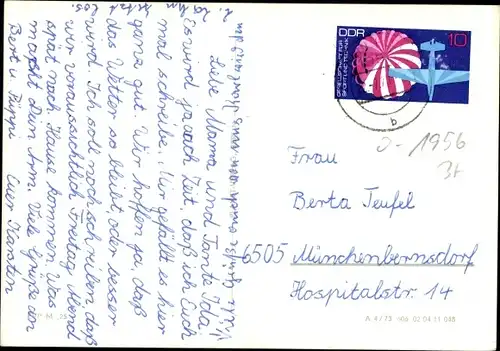 Liebe Mama und Tante Ida!
Es wird ja auch Zeit, daß ich Euch
mal schreibe. Mir gefällt es hier
ganz gut. Wir hoffen ja, daß
das Wetter so bleibt, oder besser
wird. Ich soll noch schreiben daß
wir voraussichtlich Freitag Abend
spät nach Hause kommen. Was
macht Dein Arm. Viele Grüße von
Bert u.
Euer Karsten
DDR
10
GESELLSCHAFT FÜR
SPORT UND TECHNIK
b
0-1956
Frau
Berta Teufel
6505 Münchenbernsdorf
Hospitalstr. 14
A 4/73